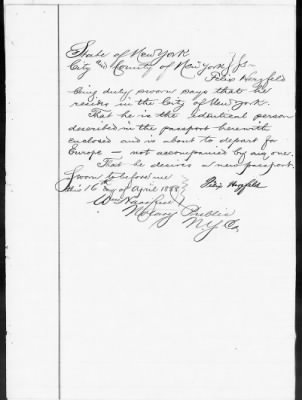 State of New York
City and County of New York } ss
Felix Herzfeld
being duly sworn says that he
resides in the City of New York.
That he is the identical person
described in the passport herewith
enclosed and is about to depart for
Europe — not accompanied by any one.
That he desires a new passport.
Sworn to before me
this 16th day of April 1888 } Felix Herzfeld
Notary Public
N.Y. Co.